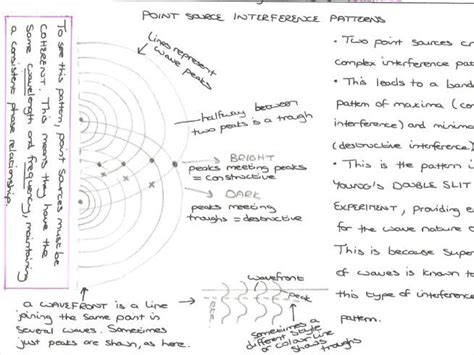 POINT SOURCE INTERFERENCE PATTERNS
To see this pattern, point sources must be
COHERENT. This means they have the
same wavelength and frequency, maintaining
a consistent phase relationship.
lines represent
wave peaks
halfway between
two peaks is a trough
BRIGHT
peaks meeting peaks
= constructive
DARK
peaks meeting
troughs = destructive
a WAVEFRONT is a line
joining the same part in
several waves. Sometimes
just peaks are shown, as here.
wavefront
peak
sometimes a
different style
or colour line
shows troughs
• Two point sources cr
complex interference pa
• This leads to a band
pattern of maxima (co
interference) and minim
(destructive interferenc
• This is the pattern i
YOUNG'S DOUBLE SLIT
EXPERIMENT, providing e
for the wave nature o
This is because super
of waves is known t
this type of interferenc
pattern.